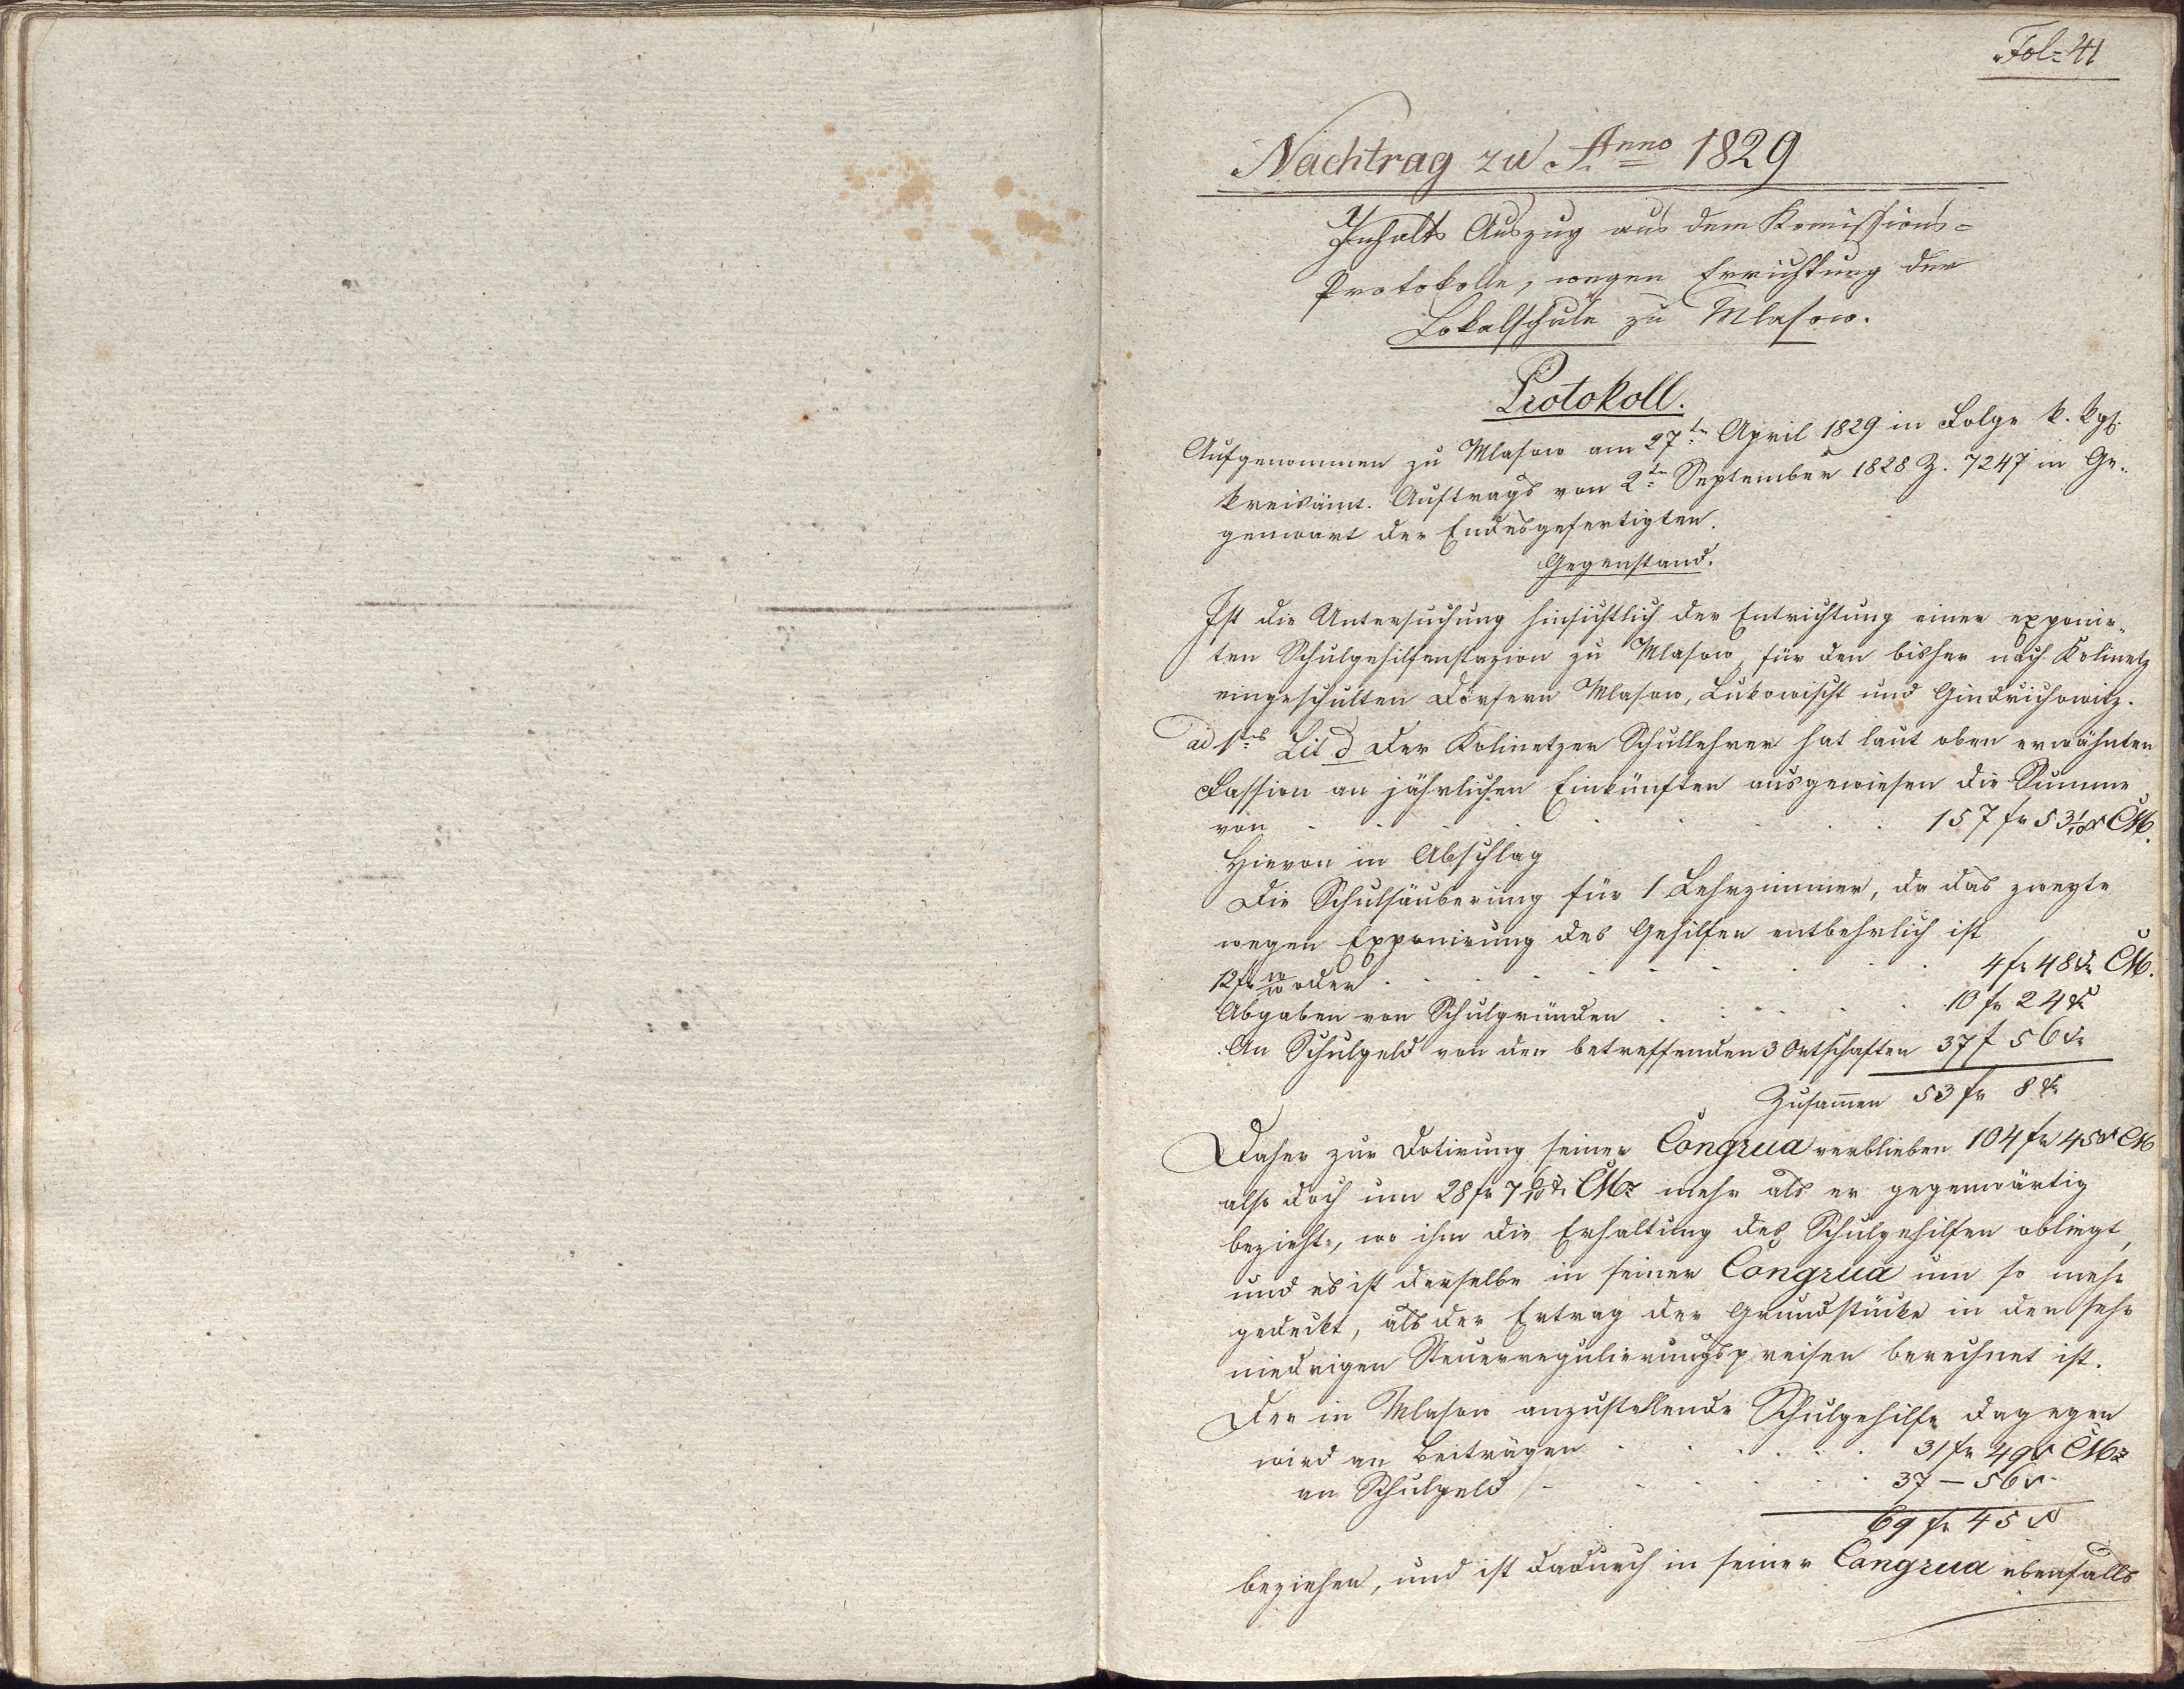 Fol= 41
Nachtrag zu Anno 1829
Inhalts Auszug aus dem Komissions=
Protokolle, wegen Errichtung der
Lokalschule zu Mlasow.
Protokoll.
Aufgenommen zu Mlasow am 27tn April 1829 in Folge k. kgl.
kreisämt. Auftrags von 2tn September 1828 Z. 7247 in Ge-
genwart der Endesgefertigten.
Gegenstand.
Ist die Untersuchung hinsichtlich der Entrichtung einer exponir-
ten Schulgehilfenstazion zu Mlasow, für den bisher nach Kolinetz
eingeschulten Dörfern Mlasow, Lukowischt und Gindrichowitz.
ad 1tens Lit d Der Kolinetzer Schullehrer hat laut oben erwähnten
Fassion an jährlichen Einkünften ausgewiesen die Summe
von . . . . . . . . 157 fr 53 1/10 x CM.
Hievon in Abschlag
Die Schulsäuberung für 1 Lehrzimmer, da das zweyte
wegen Exponirung des Gehilfen entbehrlich ist
12 fr oder . . . . . . . . 4 fr 48 xr CM.
Abgaben von Schulgründen . . . . . 10 fr 24 xr
An Schulgeld von den betreffenden 3 Ortschaften 37 f 56 xr
Zusam̄en 53 fr 8 xr
Daher zur Dotirung seiner Congrua verblieben 104 fr 45 x CM
also doch um 28 fr 7 6/10 xr CMz mehr als er gegenwärtig
bezieht, wo ihm die Erhaltung des Schulgehilfen obliegt,
und es ist derselbe in seiner Congrua um so mehr
gedeckt, als der Ertrag der Grundstücke in den sehr
niedrigen Steuerregulierungspreisen berechnet ist.
Der in Mlasow anzustellende Schulgehilfe dagegen
wird an Beiträgen . . . . . . 31 fr 49 x CMz
an Schulgeld . . . . . . 37 — 56 x
69 fr 45 x
beziehen, und ist dadurch in seiner Congrua ebenfalls